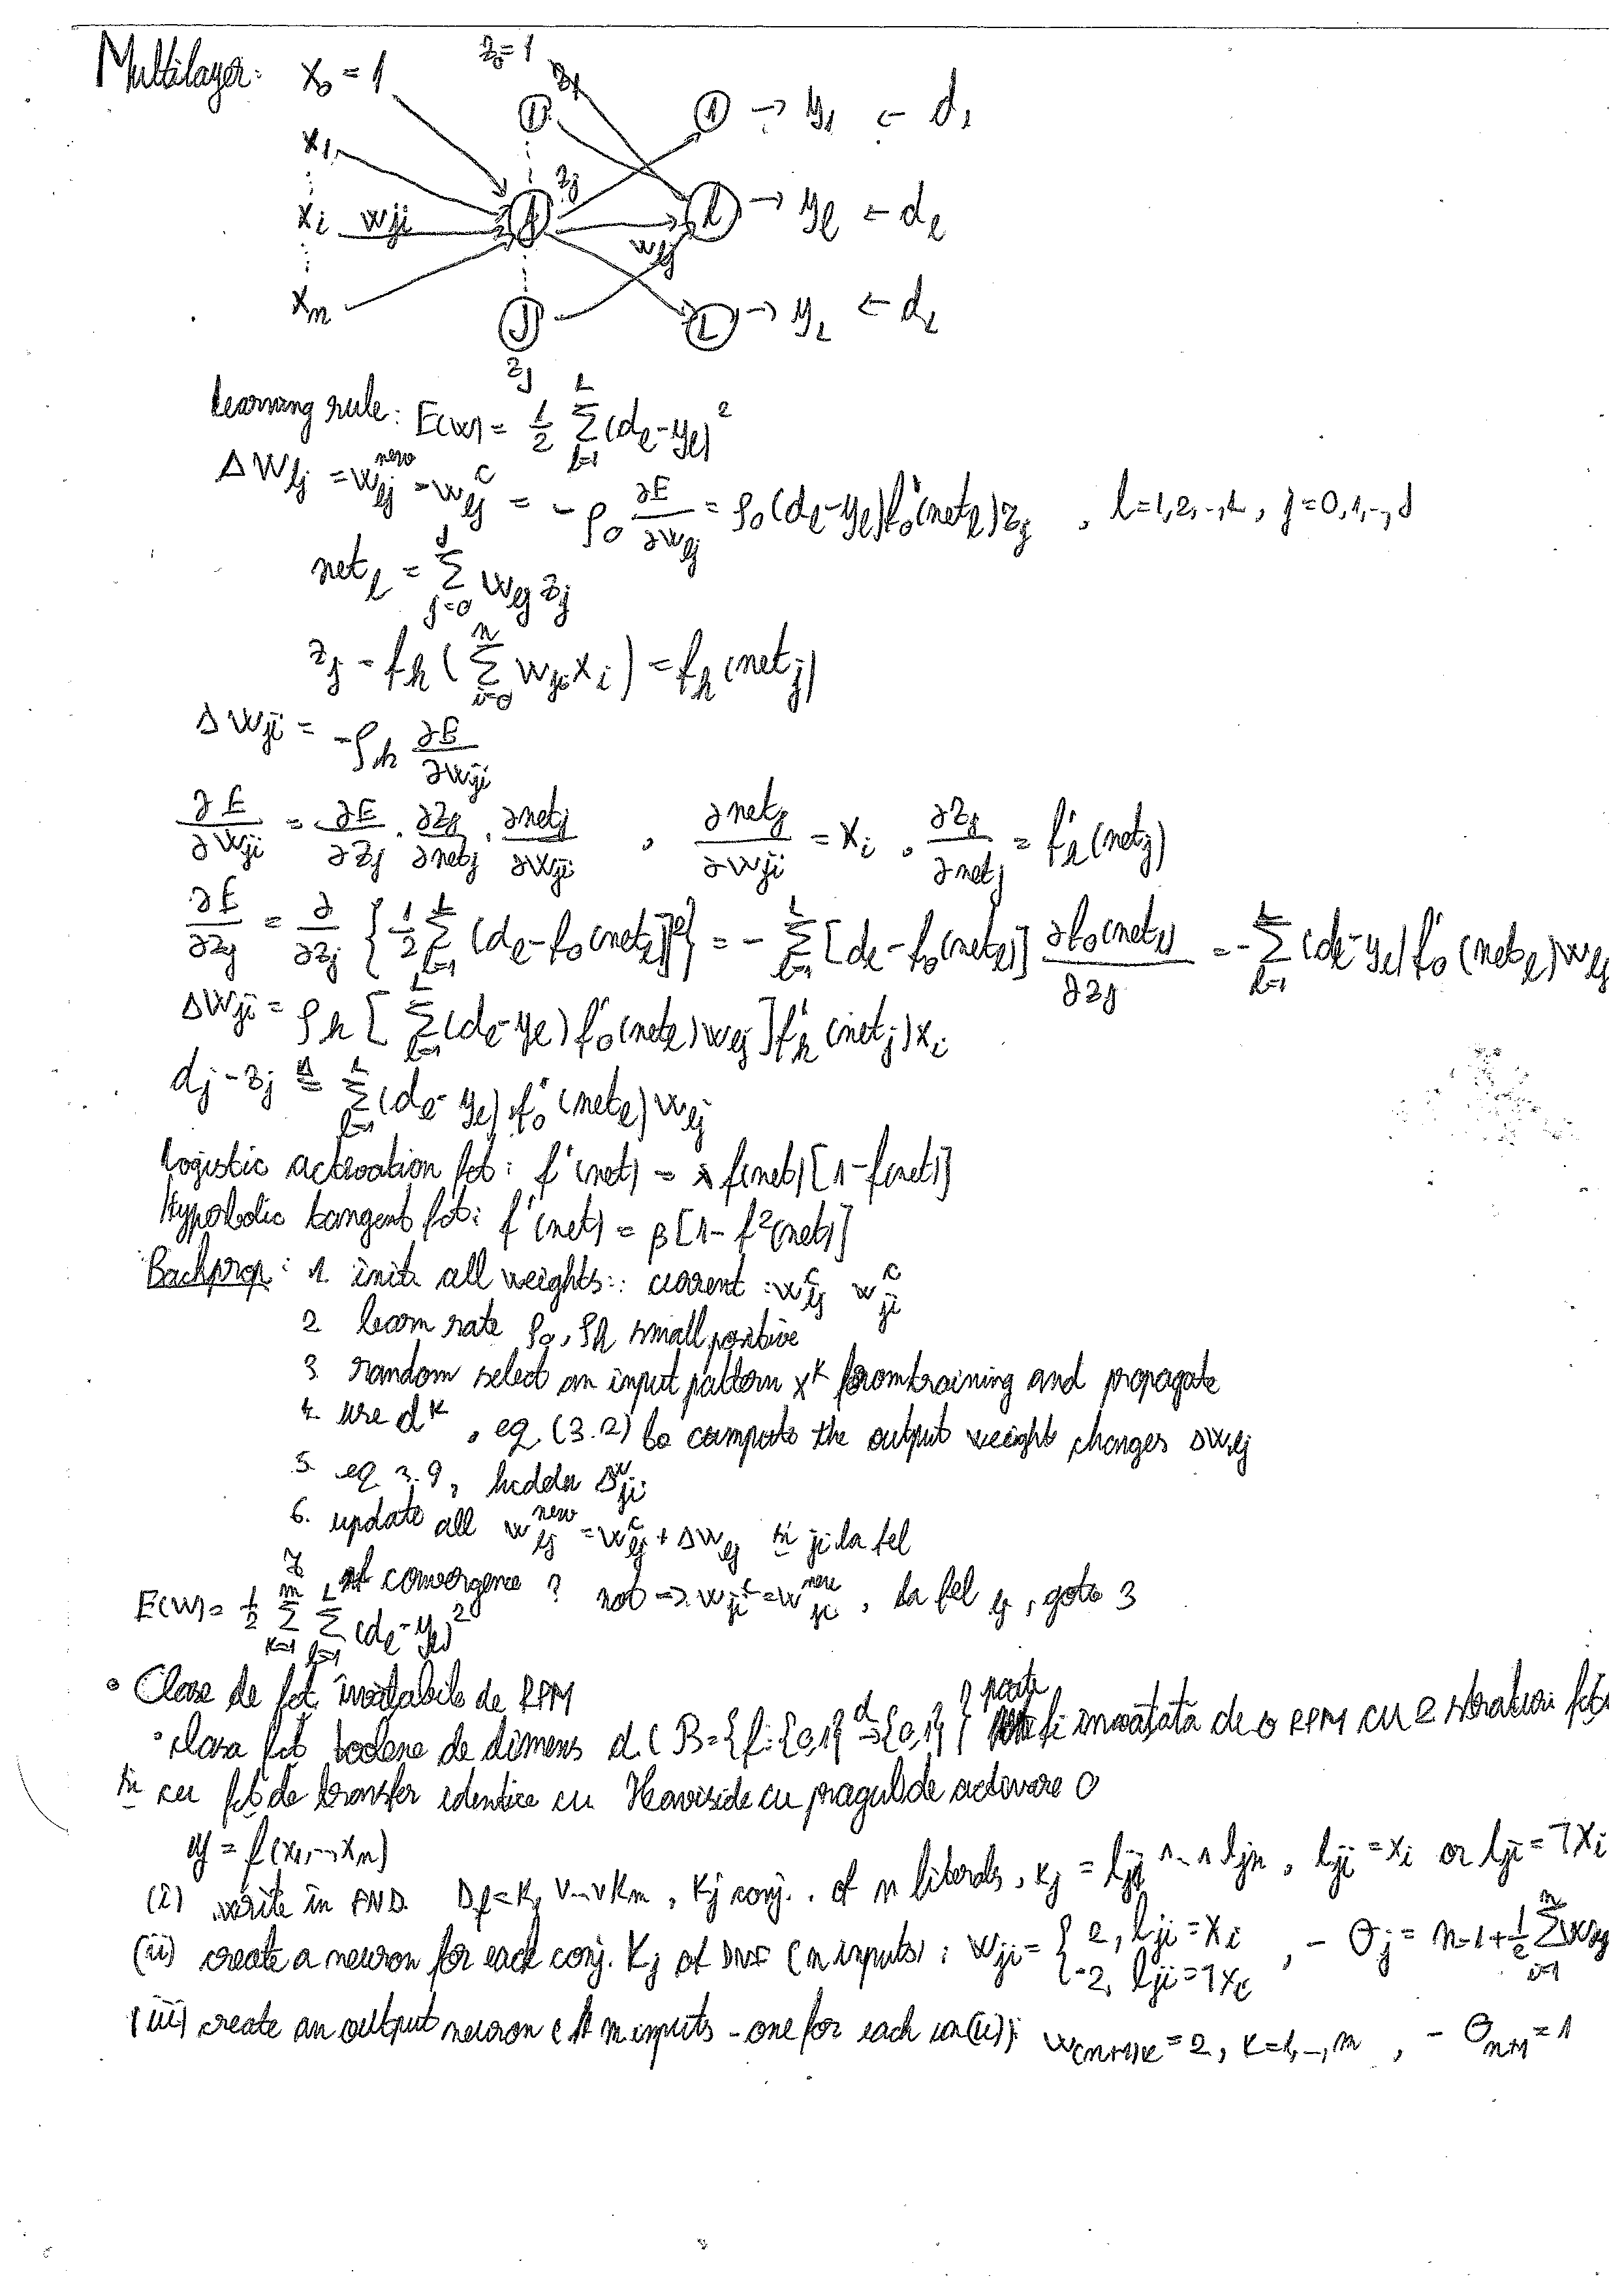 Multilayer: x₀ = 1
z₀ = 1
z₁
1 → y₁ ← d₁
x₁
zj
xi wji
l → yl ← dl
wlj
xn
J
L → yL ← dL
zJ
learning rule: E(w) = 1/2 Σ_{l=1}^{L} (dl - yl)²
Δwlj = wlj^new - wlj^c = -ρo ∂E/∂wlj = ρo(dl - yl)f'o(netl)zj , l=1,2,..,L , j=0,1,..,J
netl = Σ_{j=0}^{J} wlj zj
zj = fh(Σ_{i=0}^{n} wji xi) = fh(netj)
Δwji = -ρh ∂E/∂wji
∂E/∂wji = ∂E/∂zj · ∂zj/∂netj · ∂netj/∂wji , ∂netj/∂wji = xi , ∂zj/∂netj = f'h(netj)
∂E/∂zj = ∂/∂zj {1/2 Σ_{l=1}^{L} [dl - fo(netl)]²} = - Σ_{l=1}^{L} [dl - fo(netl)] ∂fo(netl)/∂zj = - Σ_{l=1}^{L} (dl - yl) f'o(netl) wlj
Δwji = ρh [Σ_{l=1}^{L} (dl - yl) f'o(netl) wlj] f'h(netj) xi
dj - zj ≜ Σ_{l=1}^{L} (dl - yl) f'o(netl) wlj
Logistic activation fct: f'(net) = λ f(net)[1 - f(net)]
Hyperbolic tangent fct: f'(net) = β[1 - f²(net)]
Backprop: 1. init. all weights: current: wlj^c wji^c
2 learn rate ρo, ρh small positive
3. random select an input pattern x^k from training and propagate
4. use d^k, eq. (3.2) to compute the output weight changes Δwlj
5. eq. 3.9, hidden Δwji
6. update all wlj^new = wlj^c + Δwlj și ji la fel
7 convergence ? not => wji^c = wji^new, la fel lj, goto 3
E(w) = 1/2 Σ_{k=1}^{m} Σ_{l=1}^{L} (dl - yl)²
• Clase de fct. învățabile de RPM
• clasa fct boolene de dimens d. (B={f:{0,1}^d→{0,1}} poate fi învățată de o RPM cu 2 straturi fct.
și cu fct de transfer identice cu Heaviside cu pragul de activare 0
y = f(x₁,..,xn)
(i) write in FND. Df = K₁ ∨..∨ Km , Kj conj. of n literals, Kj = lj1 ∧..∧ ljn , lji = xi or lji = ¬xi
(ii) create a neuron for each conj. Kj of DNF (n inputs): wji = { 2, lji = xi -2, lji = ¬xi , - θj = n-1+1/2 Σ_{i=1}^{n} wji
(iii) create an output neuron m inputs - one for each in (ii): w(n+1)k = 2, k=1,..,m , - θn+1 = 1